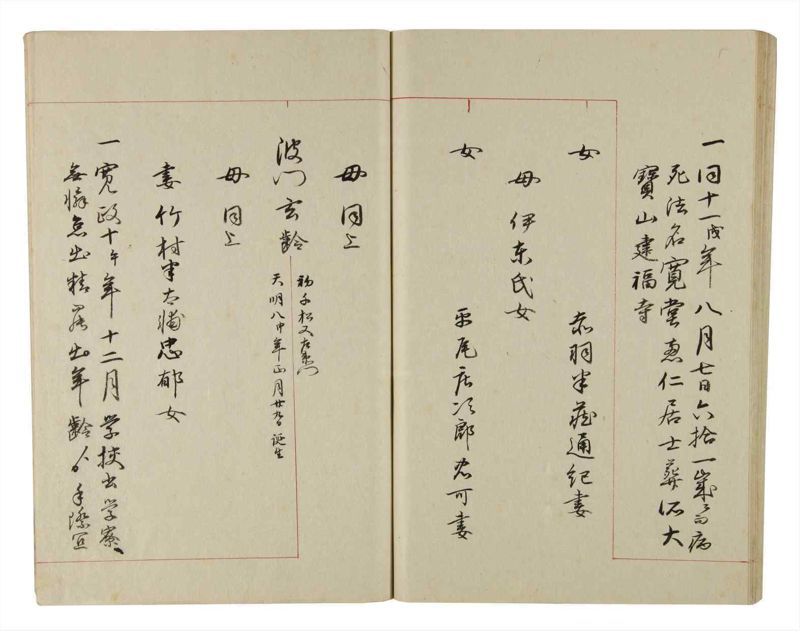 一同十一戌年八月七日六拾一歳ニ而病
死法名寛堂惠仁居士葬所大
寶山建福寺
女
赤羽半蔵通紀妻
母伊東氏女
女
平尾庄次郎忠可妻
母同上
波門玄齢
初千松又左衛門
天明八申年正月廿九日誕生
母同上
妻竹村半太輔忠郁女
一寛政十午年十二月学校出学寮
無懈怠出精罷出年齢